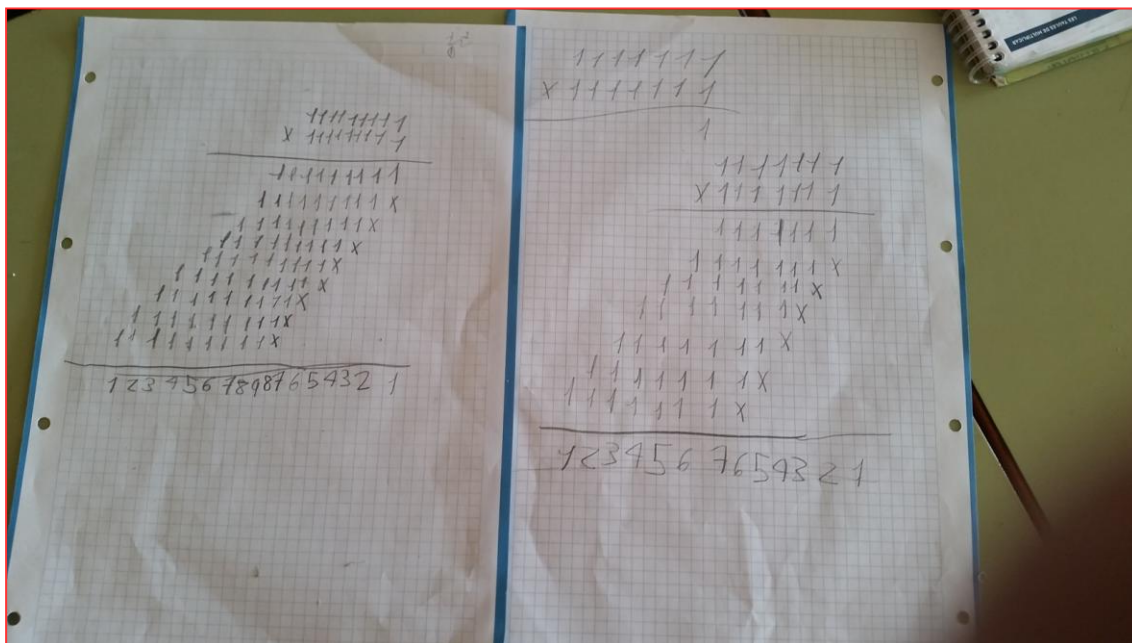 111111111
X 111111111
111111111
111111111X
111111111X
111111111X
111111111X
111111111X
111111111X
111111111X
111111111X
12345678987654321
1111111
X 1111111
1
1111111
X 1111111
1111111
1111111X
1111111X
1111111X
1111111X
1111111X
1111111X
1234567654321
LES TAULES DE MULTIPLICAR